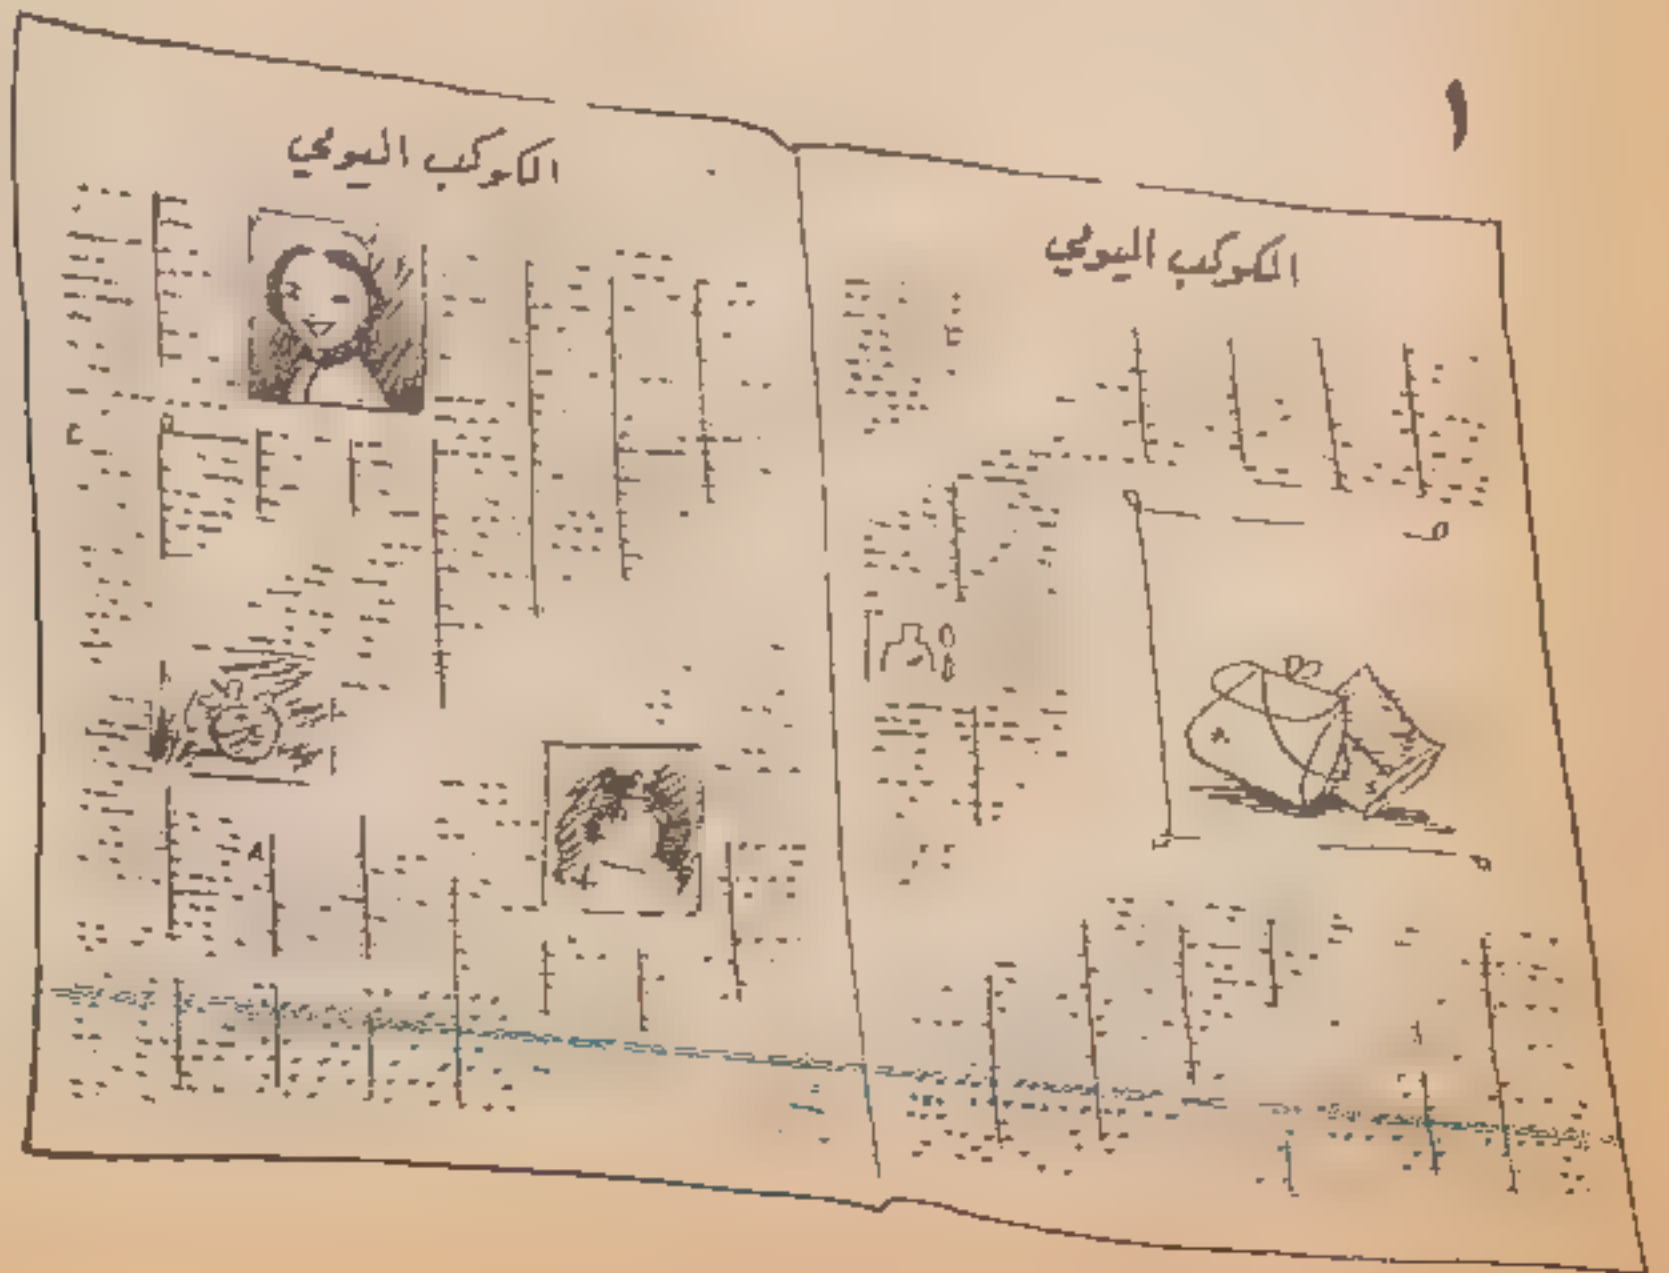 ١
الكوكب اليومي
الكوكب اليومي